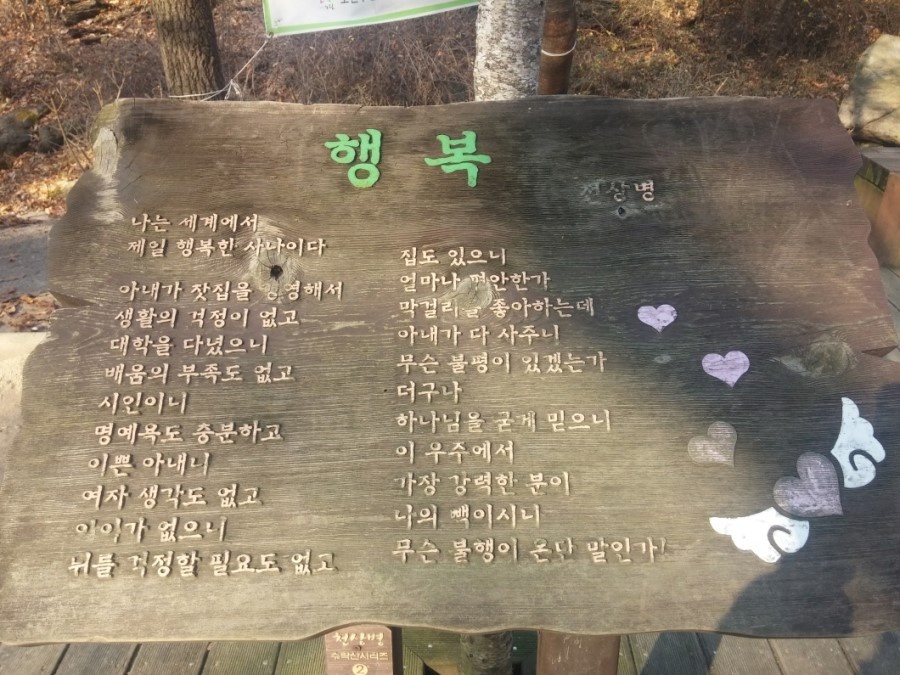 행 복
천상병
나는 세계에서
제일 행복한 사나이다
아내가 찻집을 경영해서
생활의 걱정이 없고
대학을 다녔으니
배움의 부족도 없고
시인이니
명예욕도 충분하고
이쁜 아내니
여자 생각도 없고
아이가 없으니
뒤를 걱정할 필요도 없고
집도 있으니
얼마나 편안한가
막걸리를 좋아하는데
아내가 다 사주니
무슨 불평이 있겠는가
더구나
하나님을 굳게 믿으니
이 우주에서
가장 강력한 분이
나의 빽이시니
무슨 불행이 온단 말인가!
천상병
수락산시리즈
2